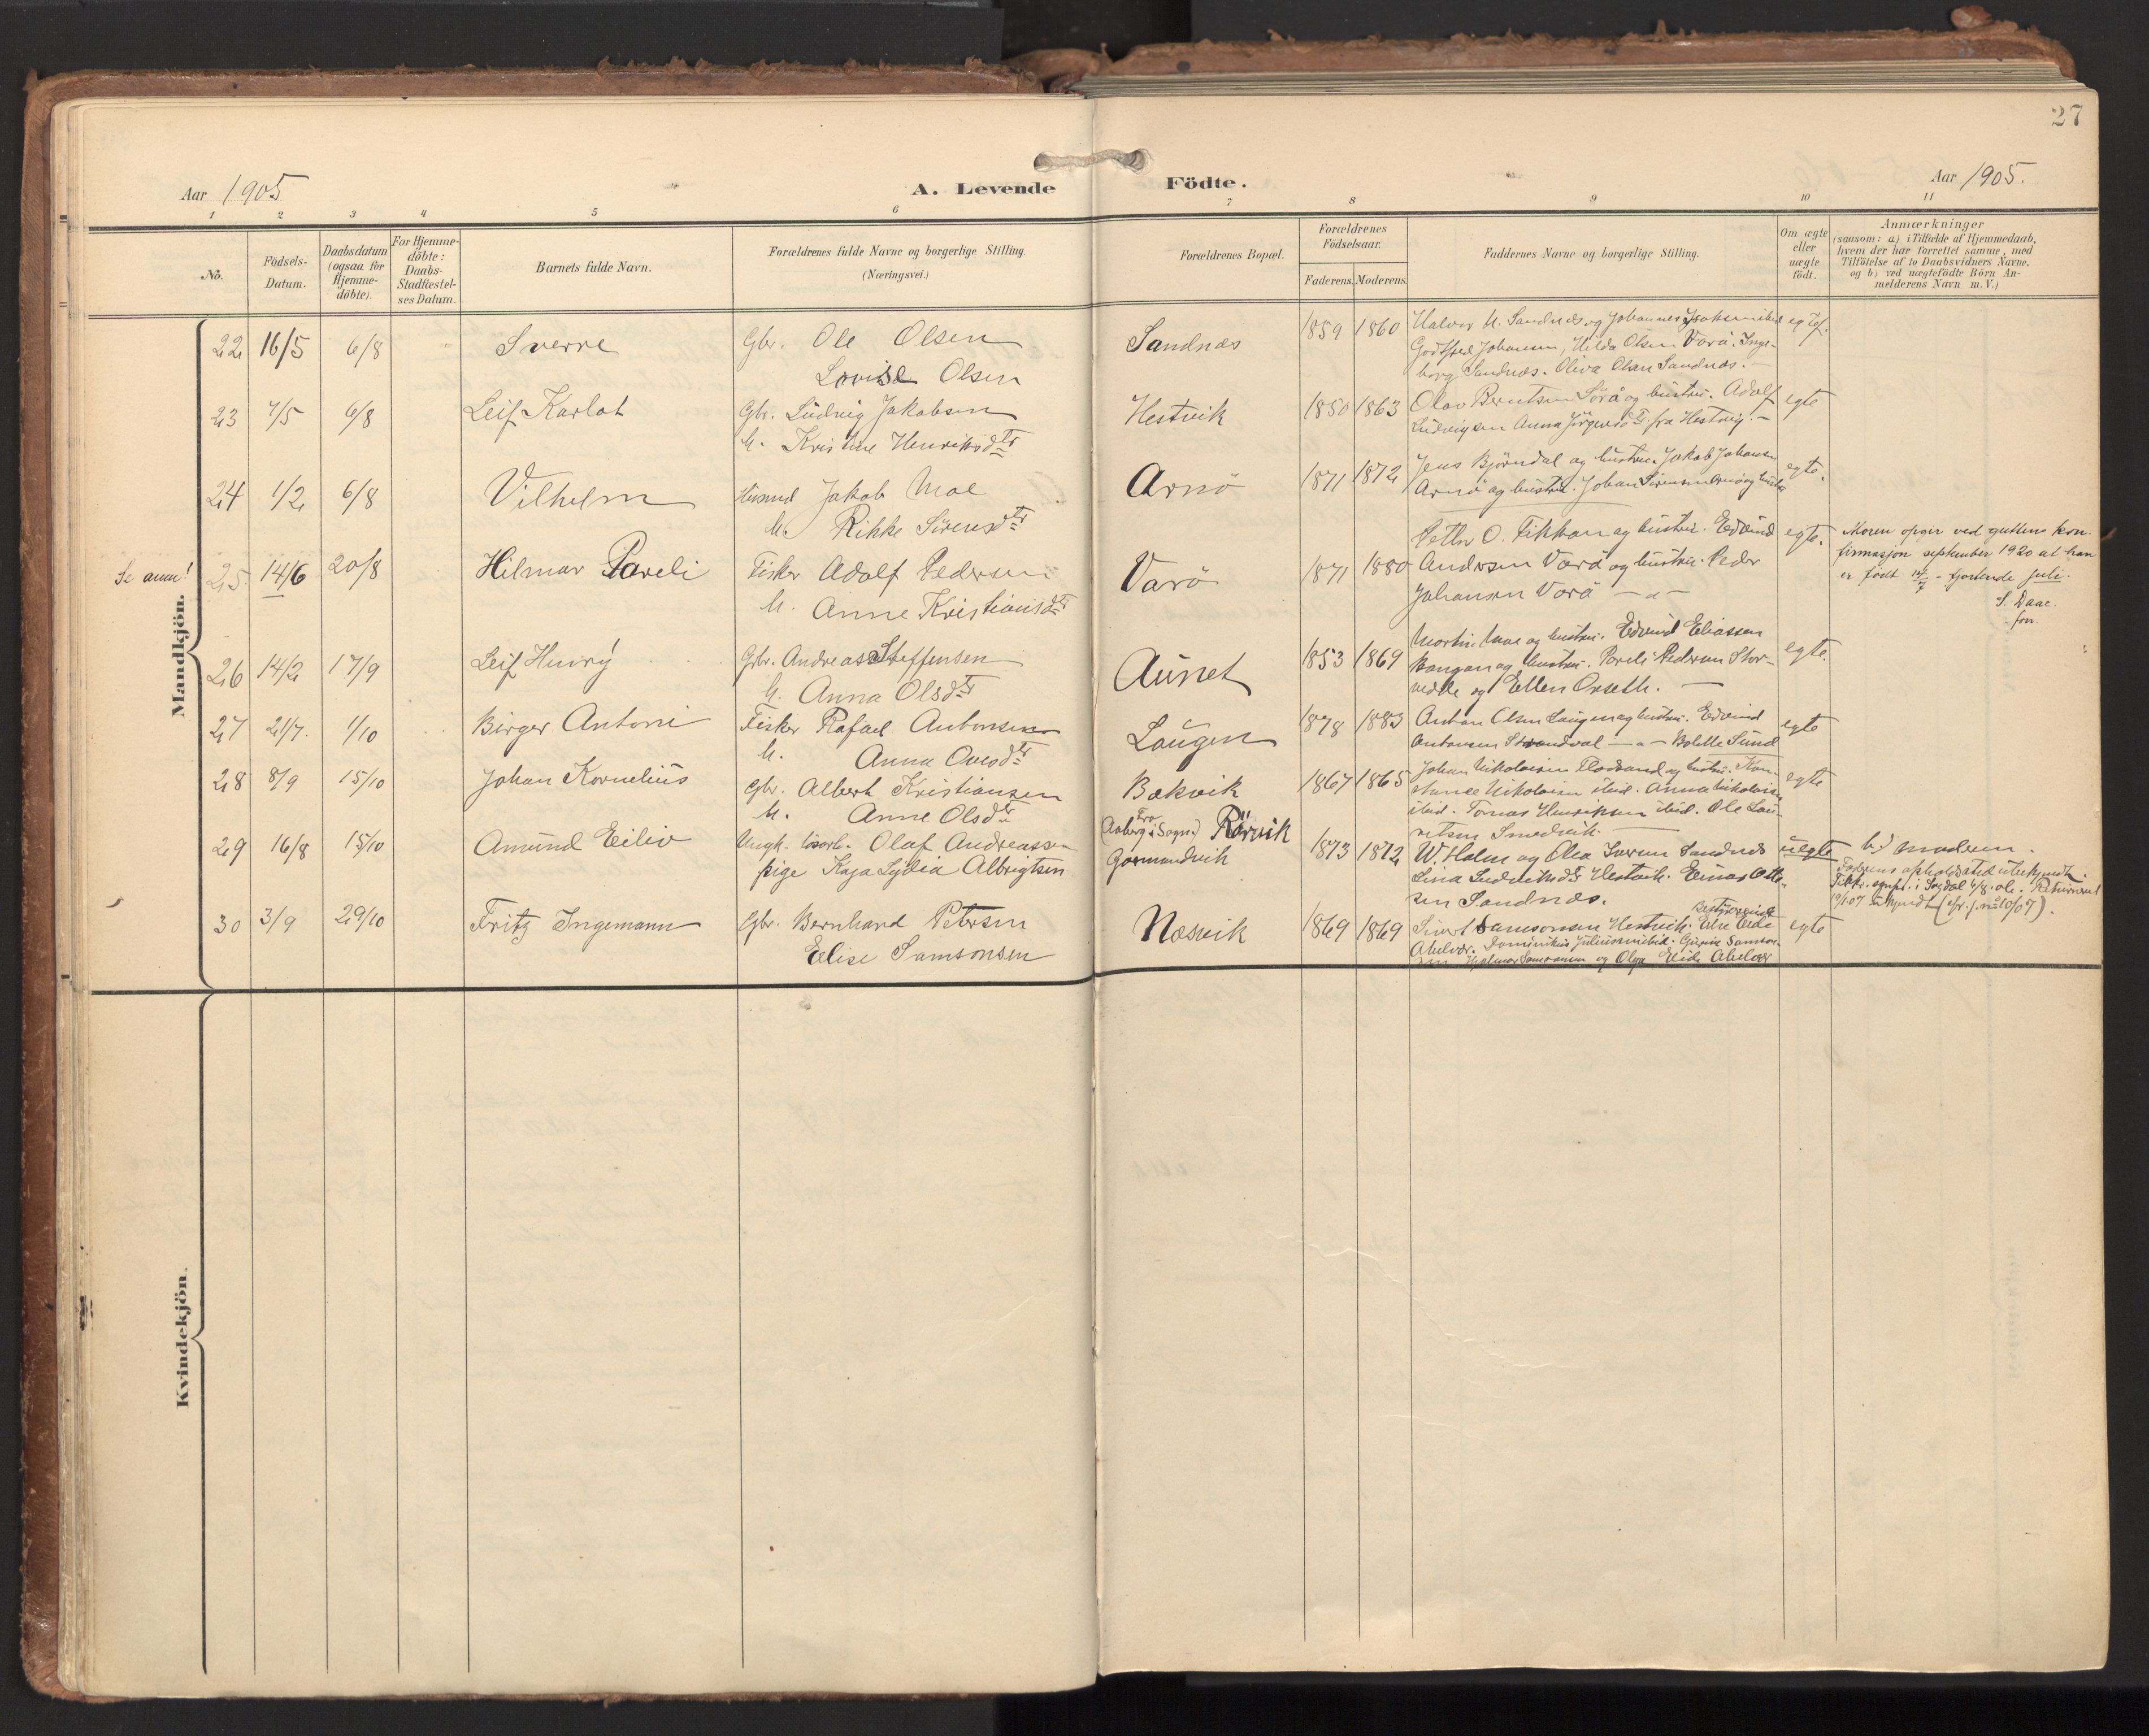 27
Aar 1905
A. Levende
Födte.
Aar 1905.
1 2 3 4 5 6 7 8 9 10 11
No.
Födsels-
Datum.
Daabsdatum
(ogsaa for
Hjemme-
döbte).
For Hjemme-
döbte:
Daabs-
Stadfæstel-
ses Datum.
Barnets fulde Navn.
Forældrenes fulde Navne og borgerlige Stilling.
(Næringsvei.)
Forældrenes Bopæl.
Forældrenes
Födselsaar.
Faderens. Moderens.
Faddernes Navne og borgerlige Stilling.
Om ægte
eller
uægte
födt.
Anmærkninger
(saasom: a) i Tilfælde af Hjemmedaab,
hvem der har forrettet samme, med
Tilföielse af to Daabsvidners Navne,
og b) ved uægtefödte Börn An-
melderens Navn m. V.)
Mandkjön.
22 16/5 6/8 Sverre
Gbr. Ole Olsen
Lovise Olsen
Sandnæs
1859 1860
Halvor M. Sandnæs og Johannes Isaksen ibid
Godtfred Johansen, Hilda Olsen Varö. Inge-
borg Sandnæs. Oliva Olsen Sandnæs. -
23 7/5 6/8 Leif Karlot
Gbr. Ludvig Jakobsen
h. Kristine Henriksdtr
Hestvik
1850 1863
Olav Berntsen Sörö og hustru. Adolf
Ludvigsen Anna Jörgensdtr fra Hestvig. -
egte
24 1/2 6/8 Vilhelm
Husmd Jakob Moe
h. Rikke Sörensdtr
Arnö
1871 1872
Jens Björndal og hustru. Jakob Johansen
Arnö og hustru. Johan Sörensen Arnö og hustru
egte.
Se anm! 25 14/6 20/8 Hilmar Pareli
Fisker Adolf Pedersen
h. Anne Kristiansdtr
Varö
1871 1880
Petter O. Fikkan og hustru. Edvind
Andersen Varö og hustru. Peder
Johansen Varö - " -
egte.
Moren opgir ved guttens kon-
firmasjon september 1920 at han
er födt 14/7 - fjortende juli.
S. Daae.
fon.
26 14/2 17/9 Leif Henry
Gbr. Andreas Steffensen
h. Anna Olsdtr
Aunet
1853 1869
Martin Moe og hustru. Edvind Eliassen
og hustru. Pareli Pedersen Stor-
og Ellen Orseth. -
egte.
27 21/7. 1/10 Birger Antoni
Fisker Rafael Antonsen
h. Anna Ovesdtr
Laugen
1878 1883
Anton Olsen Laugen og hustru. Edvind
Antonsen Strandval - " - Bolette Sund
egte
28 8/9 15/10 Johan Kornelius
Gbr. Albert Kristiansen
h. Anne Olsdtr
Bakvik
1867 1865
Johan Nikolaisen Flosand og hustru. Kon-
stanse Nikolaisen ibid. Anna Nikolaisen
ibid. Tomas Henriksen ibid. Ole Lau-
ritsen Smedvik.
egte
29 16/8 15/10 Amund Eiliv
Ungk. lösarb. Olaf Andreassen
pige Kaja Lydia Albrigtsen
Fra
(Aaberg i Sogn.) Rörvik
Garmandvik
1873 1872
W. Holm og Olea Iversen Sandnæs
Lina Ludviksdtr Hestvik. Einar Otte-
sen Sandnæs.
uegte
b.) moderen.
Faderens opholdssted ubekjendt.
30 3/9 29/10 Fritz Ingemann
Gbr. Bernhard Petersen
Elise Samsonsen
Næsvik
1869 1869
Sivert Samsonsen Hestvik. Elise Eide
Abelvær. Dominikus Juliussen ibid. Gunnar Samson-
sen Hjalmar Samsonsen og Olga Eide Abelvær
egte
Kvindekjön.